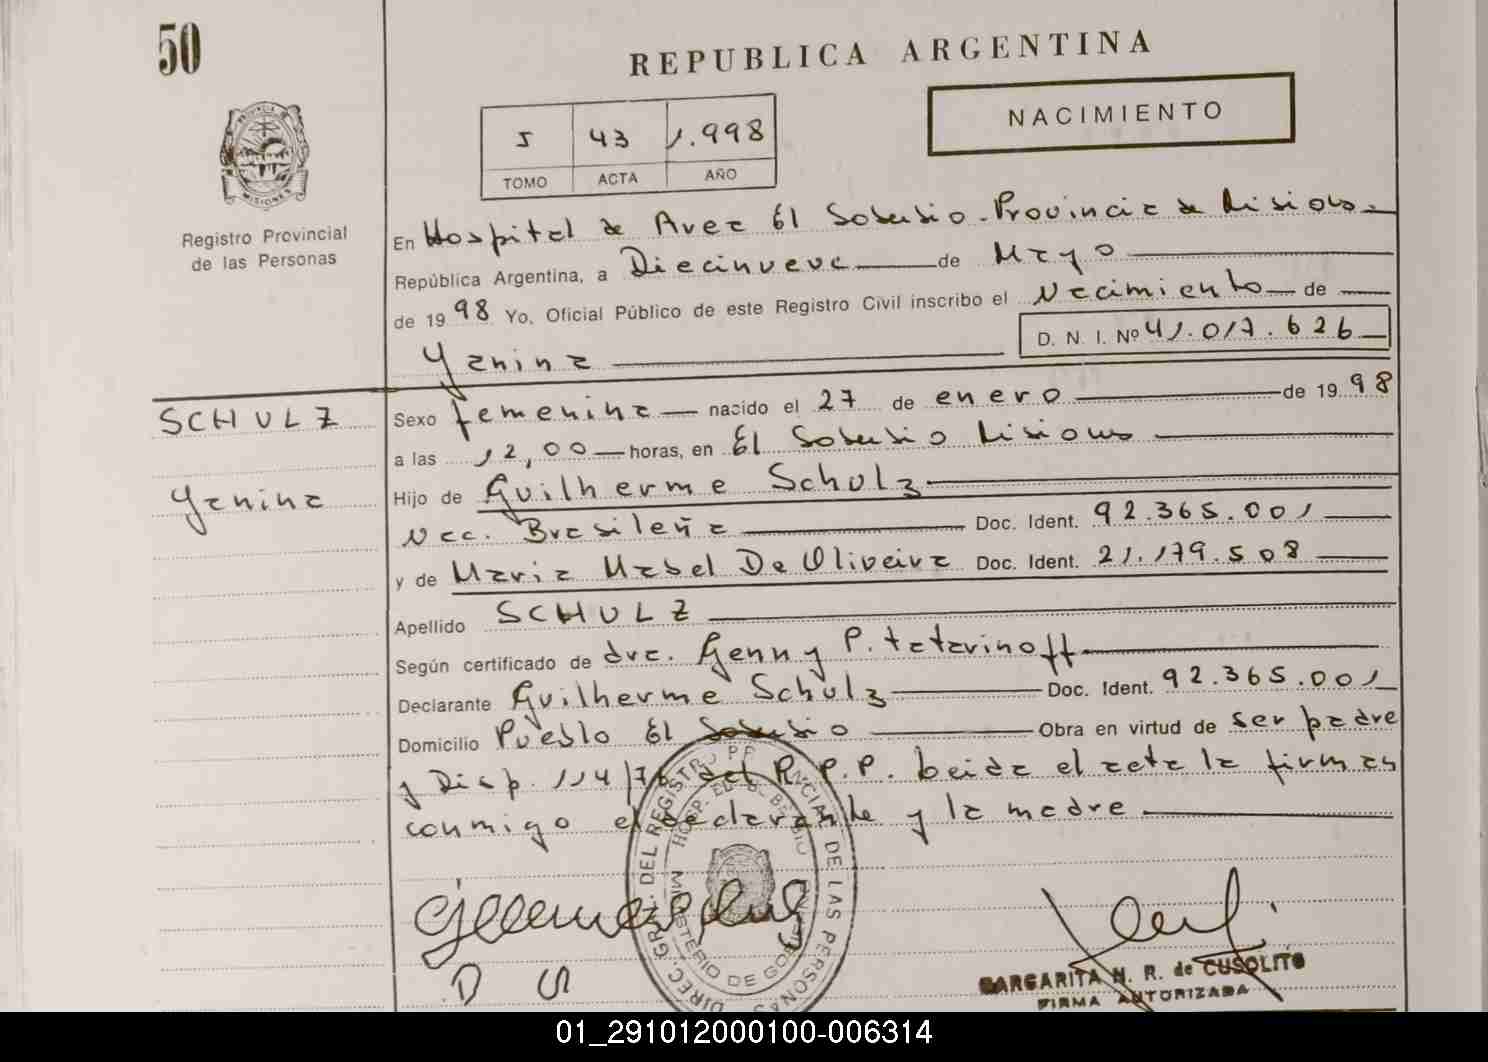 50
REPUBLICA ARGENTINA
NACIMIENTO
5 43 1.998
TOMO ACTA AÑO
PROVINCIA DE
MISIONES
Registro Provincial
de las Personas
En Hospital de Area El Soberbio - Provincia de Misiones.-
República Argentina, a Diecinueve de Mayo
de 1998 Yo, Oficial Público de este Registro Civil inscribo el Nacimiento de
D. N. I. Nº 41.017.626
Yanina
SCHULZ
Sexo femenina nacido el 27 de enero de 1998
a las 12,00 horas, en El Soberbio Misiones
Yanina
Hijo de Guilherme Schulz
Nac. Brasileña Doc. Ident. 92.365.001
y de Maria Mabel De Oliveira Doc. Ident. 21.179.508
Apellido SCHULZ
Según certificado de dra. Genny P. tatarinoff
Declarante Guilherme Schulz Doc. Ident. 92.365.001
Domicilio Pueblo El Soberbio Obra en virtud de ser padre
y Disp. 114/76 del R.P.P. leida el acta la firman
conmigo el declarante y la madre
DIREC. GRAL. DEL REGISTRO PROVINCIAL DE LAS PERSONAS
MINISTERIO DE GOBIERNO
D S
MARGARITA N. R. de CUSOLITO
FIRMA AUTORIZADA
01_291012000100-006314